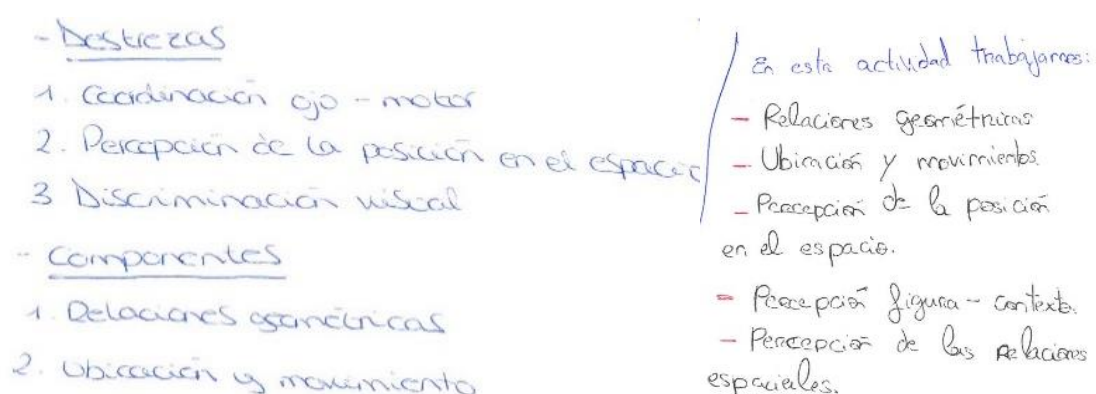 - Destrezas
1. Coordinación ojo - motor
2. Percepción de la posición en el espacio
3 Discriminación visual
- Componentes
1. Relaciones geométricas
2. Ubicación y movimiento
En esta actividad trabajamos:
- Relaciones geométricas
- Ubicación y movimientos.
- Percepción de la posición
en el espacio.
- Percepción figura - contexto.
- Percepción de las relaciones
espaciales.